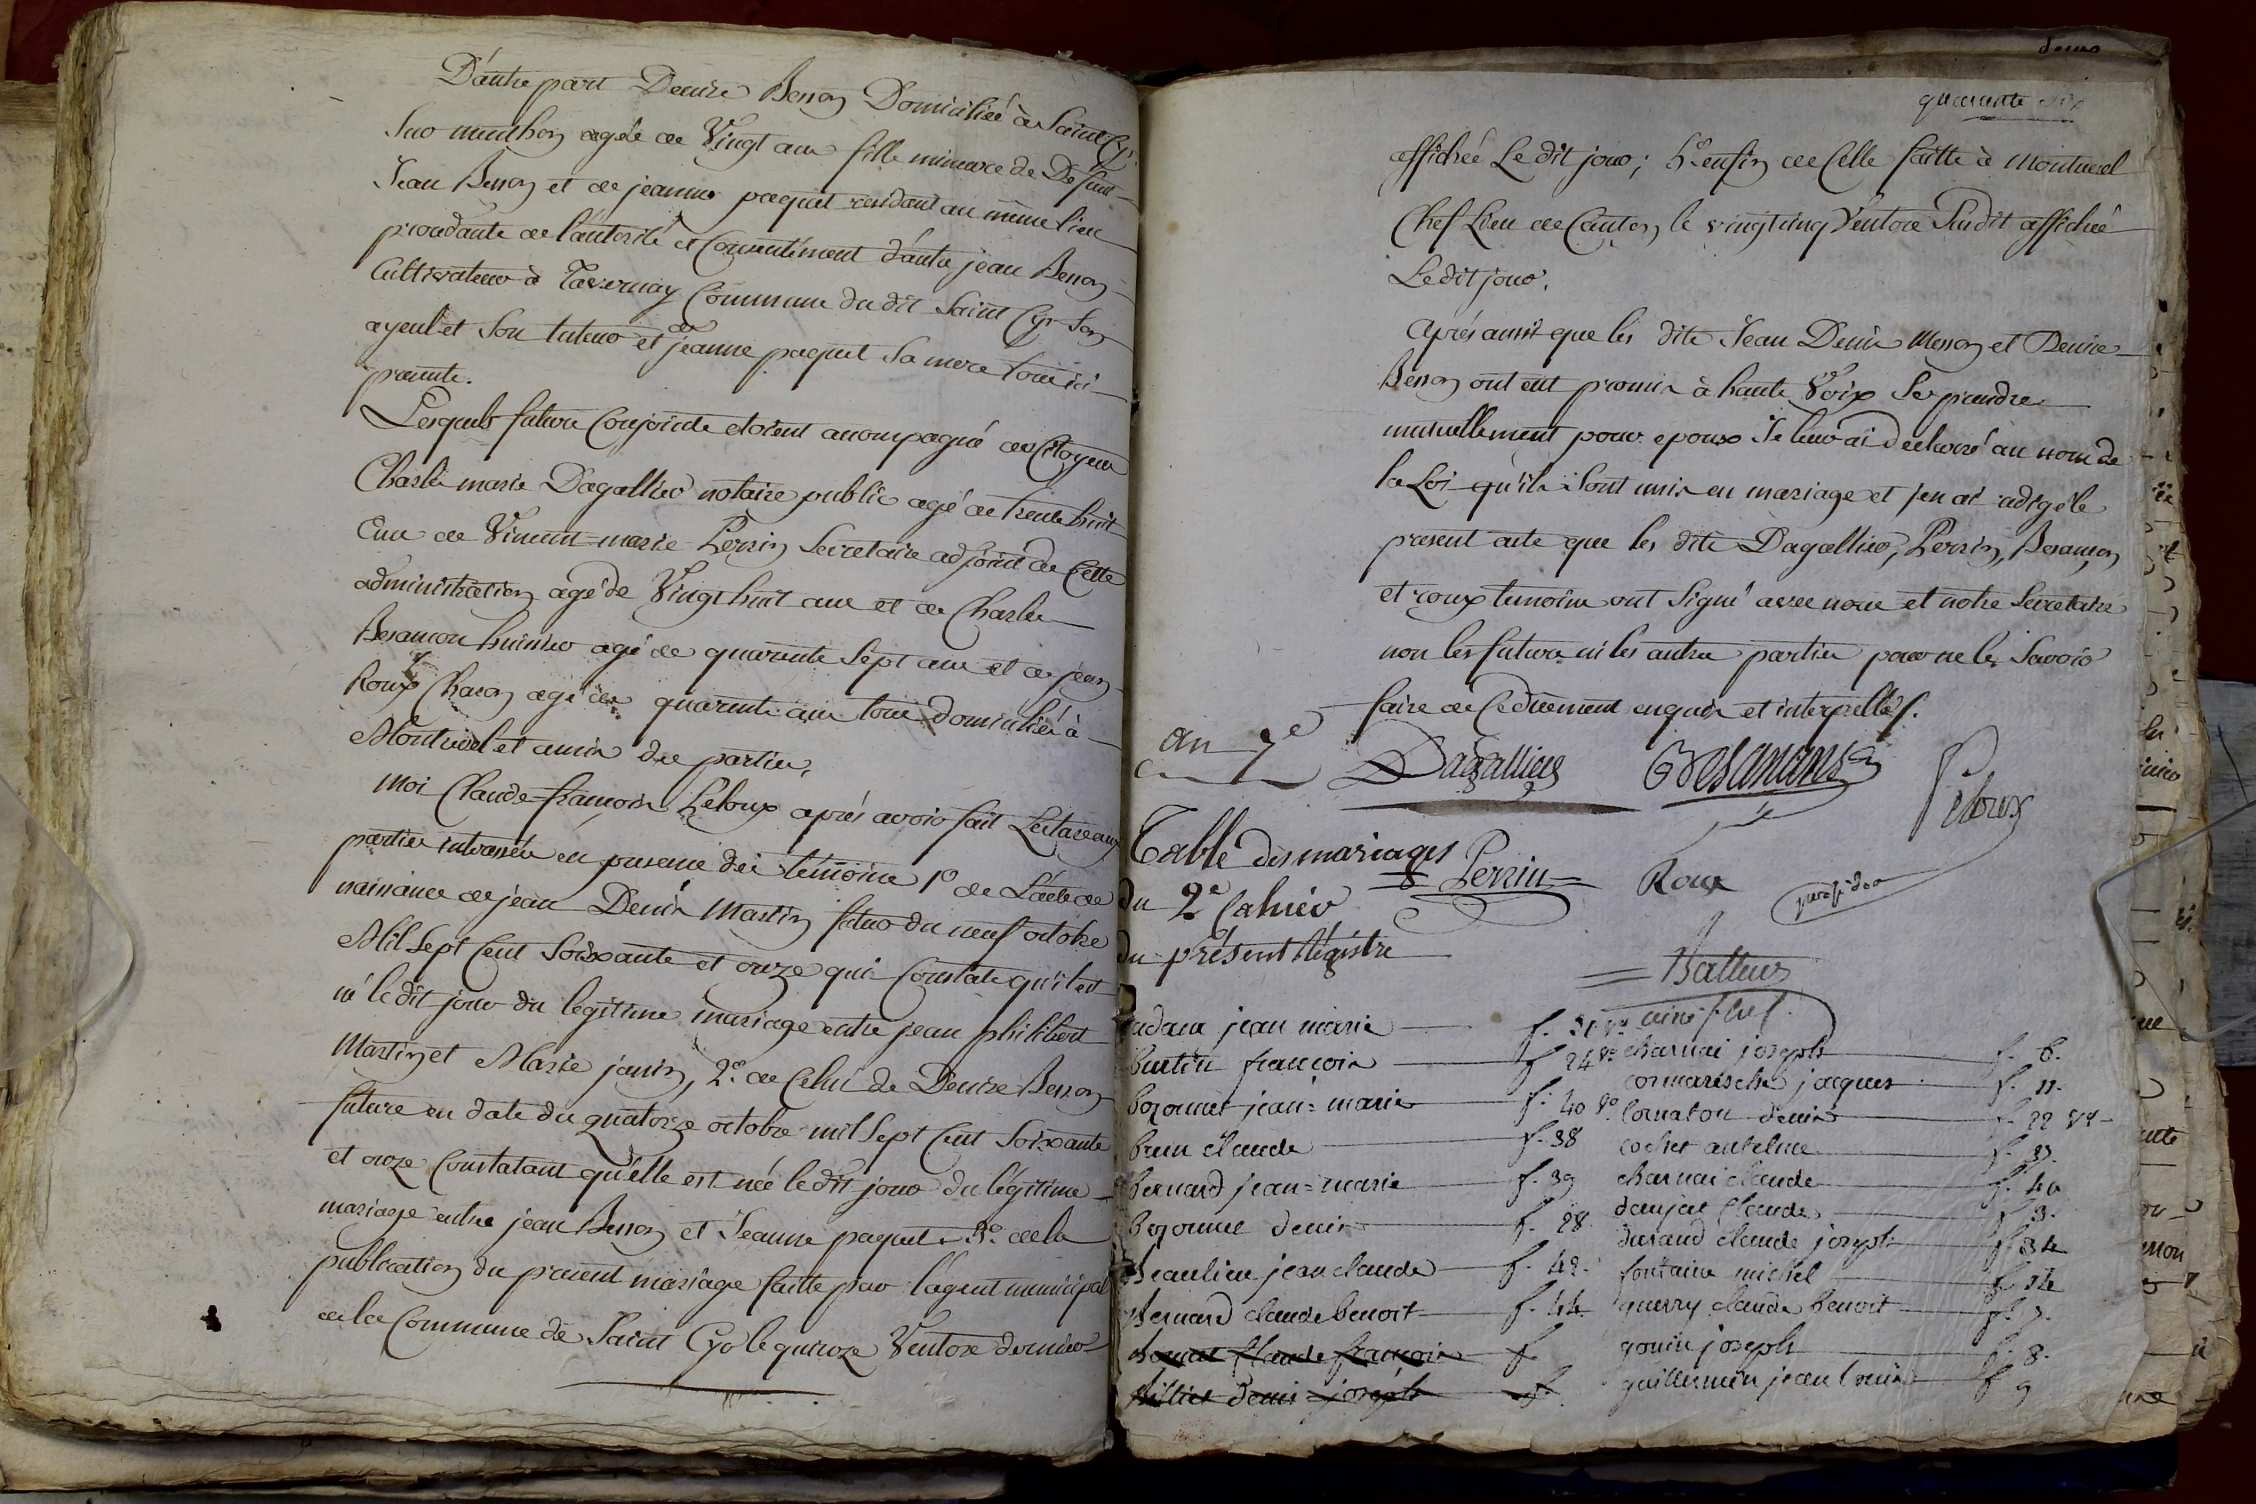 D'autre part Denise Besson Domiciliée à Saint Cyr
Sur menthon agée de Vingt ans fille mineure de Defunt
Jean Besson et de jeanne paquet residant au même lieu
procedante de l'autorité et Consentement d'autre jean Besson
Cultivateur à Tavernay Commune du dit Saint Cyr son
ayeul et Son tuteur et de jeanne paquet Sa mere tous ici
présents.
Lesquels futurs Conjoints etoient acompagné des Citoyens
Charles marie Dagallier notaire public agé de trente huit
ans de Vincent=marie Perrin Secretaire adjoint de Cette
administration agé de Vingt huit ans et de Charles
Besancon huissier agé de quarente Sept ans et de jean
Roux Charon agé de quarente ans tous domiciliés à
Montrevel et amis des parties.
Moi Claude-françois Peloux après avoir fait Lecture aux
parties interessées en presence des témoins 1º de L'acte de
naissance de jean Denis Martin futur du neuf octobre
Mil Sept Cent Soixante et onze qui Constate qu'il est
né le dit jour du legitime mariage entre jean philibert
Martin et Marie janin, 2º de Celui de Denise Besson
future en date du quatorze octobre mil Sept Cent Soixante
et onze Constatant qu'elle est née le dit jour du légitime
mariage entre jean Besson et Jeanne paquet 3º de la
publication du présent mariage faitte par l'agent municipal
de la Commune de Saint Cyr le quinze Ventose dernier
quarente six
affichée Le dit jour; 4º enfin de Celle faitte à Montrevel
Chef Lieu de Canton le vingt cinq Ventose Susdit affichée
Le dit jour.
Après aussi que les dits Jean Denis Messon et Denise
Besson ont eut promis à haute Voix Se prendre
mutuellement pour epoux Je leur ai declaré au nom de
la Loi qu'ils Sont unis en mariage et j'en ai redigé le
present acte que les dits Dagallier, Perrin, Besançon
et roux temoins ont Signé avec nous et notre Secretaire
non les futurs ni les autres parties pour ne les Savoir
faire de Ce duement enquis et interpellés.
an 7e
Dagallier Besancons Peloux
Table des mariages
Perrin Roux président
du 2e Cahier
du présent Régistre
Batteur
adam jean marie f. 31 vº
burtin francois f 24 vº
bozonnet jean=marie f. 40 vº
brun claude f. 38
bernard jean=marie f. 39
bozonnet denis f. 28
beaulieu jean claude f. 42
bernard claude benoit f. 44
claude francois f
denis joseph f.
charnai joseph f. 6.
jacques f. 11.
Cornaton denis f. 22 vº
cochet antelme f. 33.
charnai claude f. 40
danjat claude f 3.
durand claude joseph f 34
fontaine michel f 14
guerry claude benoit f. 7.
gonin joseph f. 8.
guillermin jean louis f 9